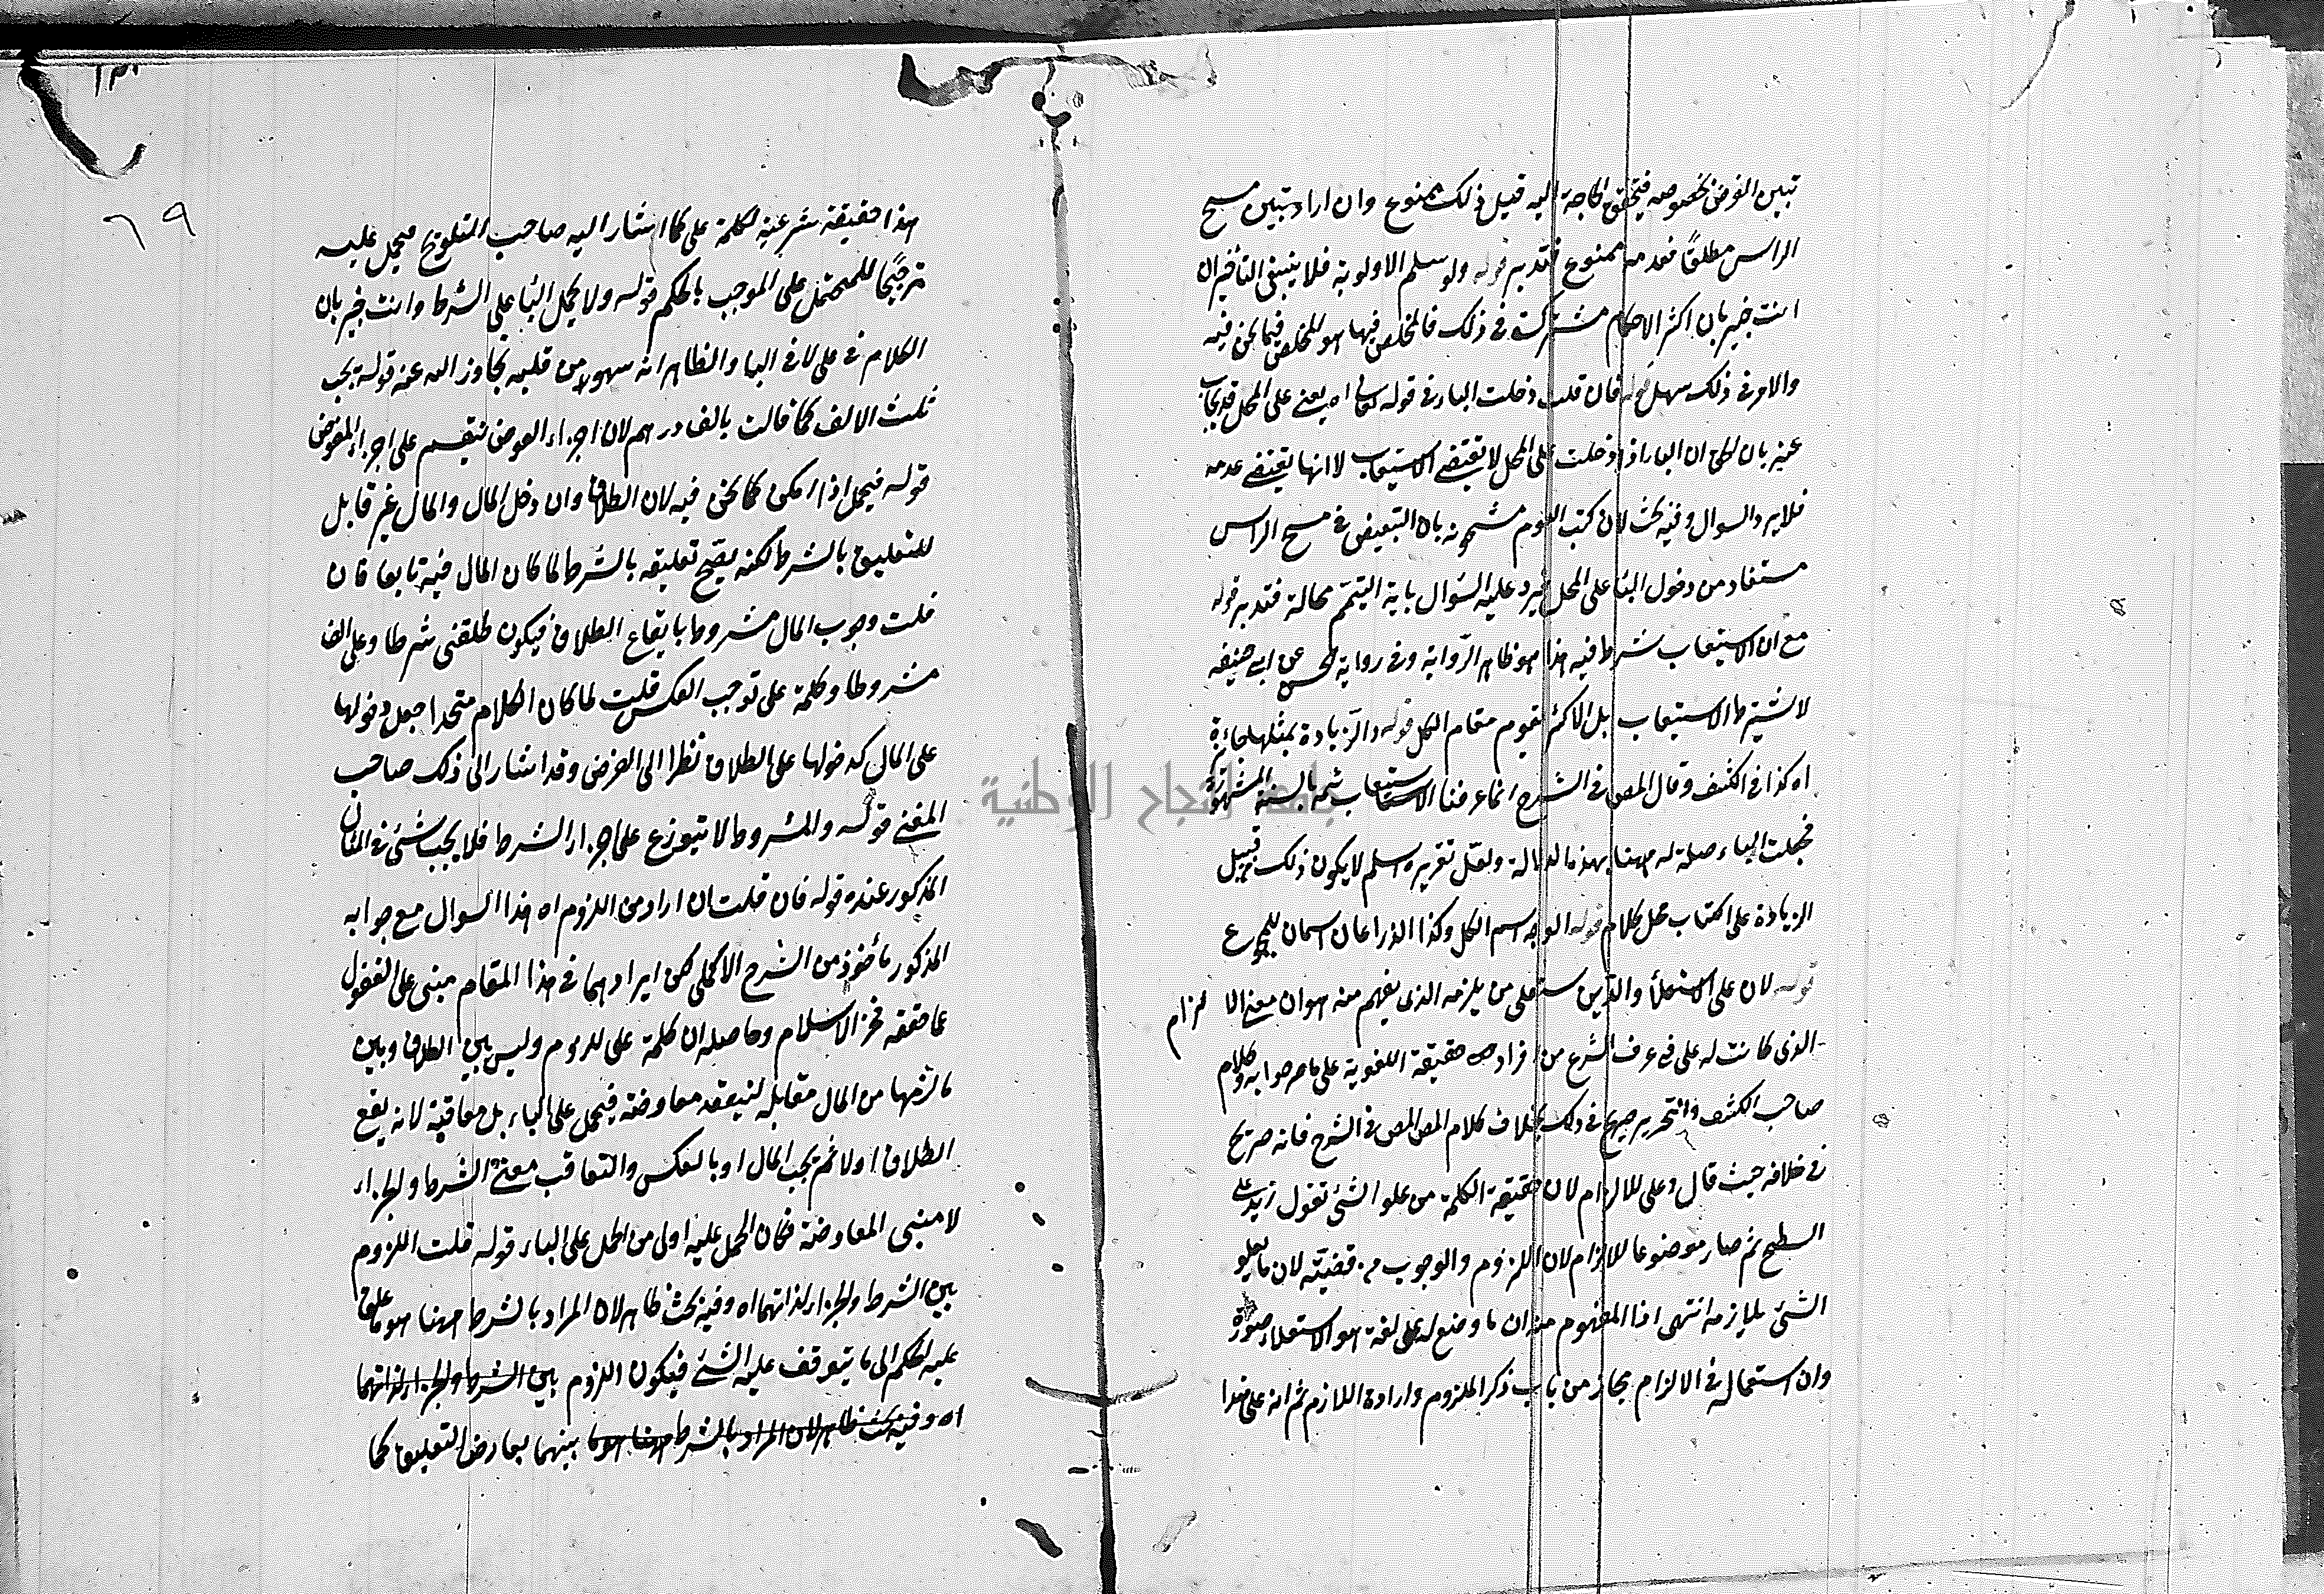 تبين الفرض بخصوصه فيتحقق الحاجة اليه قبيل ذلك ممنوع وان اراد تبين مسح
الراس مطلقا فعدمه ممنوع فتدبر قوله ولو سلم الاولوية فلا ينبغي التأخير ان
انت خبير بان اكثر الاحكام مشتركة في ذلك فالمخلص فيها هو المخلص فيما نحن فيه
والامر في ذلك سهل قوله فان قلت دخلت الباء في قوله تعالى اه يعني على المحل قد يجاب
عنه بان الباء اذا دخلت على المحل لا تقتضي الاستيعاب لا انها تقتضي عدمه
فلا يرد السوال وفيه بحث لان كتب القوم مشحونة بان التبعيض في مسح الراس
مستفاد من دخول الباء على المحل فيرد عليه السؤال باية التيمم محالة فتدبر قوله
مع ان الاستيعاب شرط فيه هذا هو ظاهر الرواية وفي رواية الحسن عن ابي حنيفه
لا يشترط الاستيعاب بل الاكثر يقوم مقام الكل قوله والزيادة بمثلها جائزة
اه كذا في الكشف وقال المص في الشرح انما عرفنا الاستيعاب ثمه بالسنة المشهورة
فجعلت الباء صلة له ههنا بهذه الدلالة ولعل تقريره اسلم لا يكون ذلك من قبيل
الزيادة على الكتاب محل كلام قوله الوجه اسم الكل وكذا الذراعان اسمان للمجموع
قوله لان على الاستعلاء والدين يستعلى من يلزمه الذي يفهم منه هو ان معنى الالزام
الذي كانت له على في عرف الشرع من افراد حقيقة اللغوية على ما صرحوا به وكلام
صاحب الكشف والتحرير صريح في ذلك بخلاف كلام المص في الشرح فانه صريح
في خلافه حيث قال وعلى للالزام لان حقيقة الكلمة من علو الشئ تقول زيد على
السطح ثم صار موضوعا للالزام لان اللزوم والوجوب من قضيته لان ما يعلو
الشئ يلازمه انتهى اذا المفهوم منه ان ما وضع له على لغة هو الاستعلاء صورة
وان استعماله في الالزام مجاز من باب ذكر الملزوم وارادة اللازم ثم انه على هذا
٦٩
هذا حقيقة شرعية لكلمة على كما اشار اليه صاحب التلويح فيحمل عليه
ترجيحا للمحتمل على الموجب بالحكم قوله ولا يحمل الباء على الشرط وانت خبير بان
الكلام في على لا في الباء والظاهر انه سهو من قلمه تجاوز الله عنه قوله يجب
ثلث الالف كما قالت بالف درهم لان اجزاء العوض ينقسم على اجزاء المعوض
قوله فيحمل اذا امكن كما نحن فيه لان الطلاق وان دخل المال والمال غير قابل
للتعليق بالشرط لكنه يصح تعليقه بالشرط لما كان المال فيه تابعا فان
قلت وجوب المال مشروط بايقاع الطلاق فيكون طلقني شرطا وعلى الف
مشروطا وكلمة على توجب العكس قلت لما كان الكلام متحدا جعل دخولها
على المال كدخولها على الطلاق نظرا الى الغرض وقد اشار الى ذلك صاحب
المغني قوله والمشروط لا يتوزع على اجزاء الشرط فلا يجب شئ في المثال
المذكور عنده قوله فان قلت ان اراد من اللزوم اه هذا السوال مع جوابه
المذكور مأخوذ من الشرح الاكملي لكن ايرادهما في هذا المقام مبني على الغفول
عما حققه فخر الاسلام وحاصله ان كلمة على للزوم وليس بين الطلاق وبين
ما لزمها من المال مقابلة لينعقد معاوضة فيحمل على الباء بل معاقبة لانه يقع
الطلاق اولا ثم يجب المال او بالعكس والتعاقب معنى الشرط والجزاء
لا معنى المعاوضة فكان الحمل عليه اولى من الحمل على الباء قوله قلت اللزوم
بين الشرط والجزاء لذاتهما اه وفيه بحث ظاهر لان المراد بالشرط ههنا هو ما علق
عليه الحكم الى ما يتوقف عليه الشئ فيكون اللزوم بين الشرط والجزاء لذاتهما
اه وفيه بحث ظاهر لان المراد بالشرط ههنا هو ما بينهما بعارض التعليق كما
جامعة النجاح الوطنية